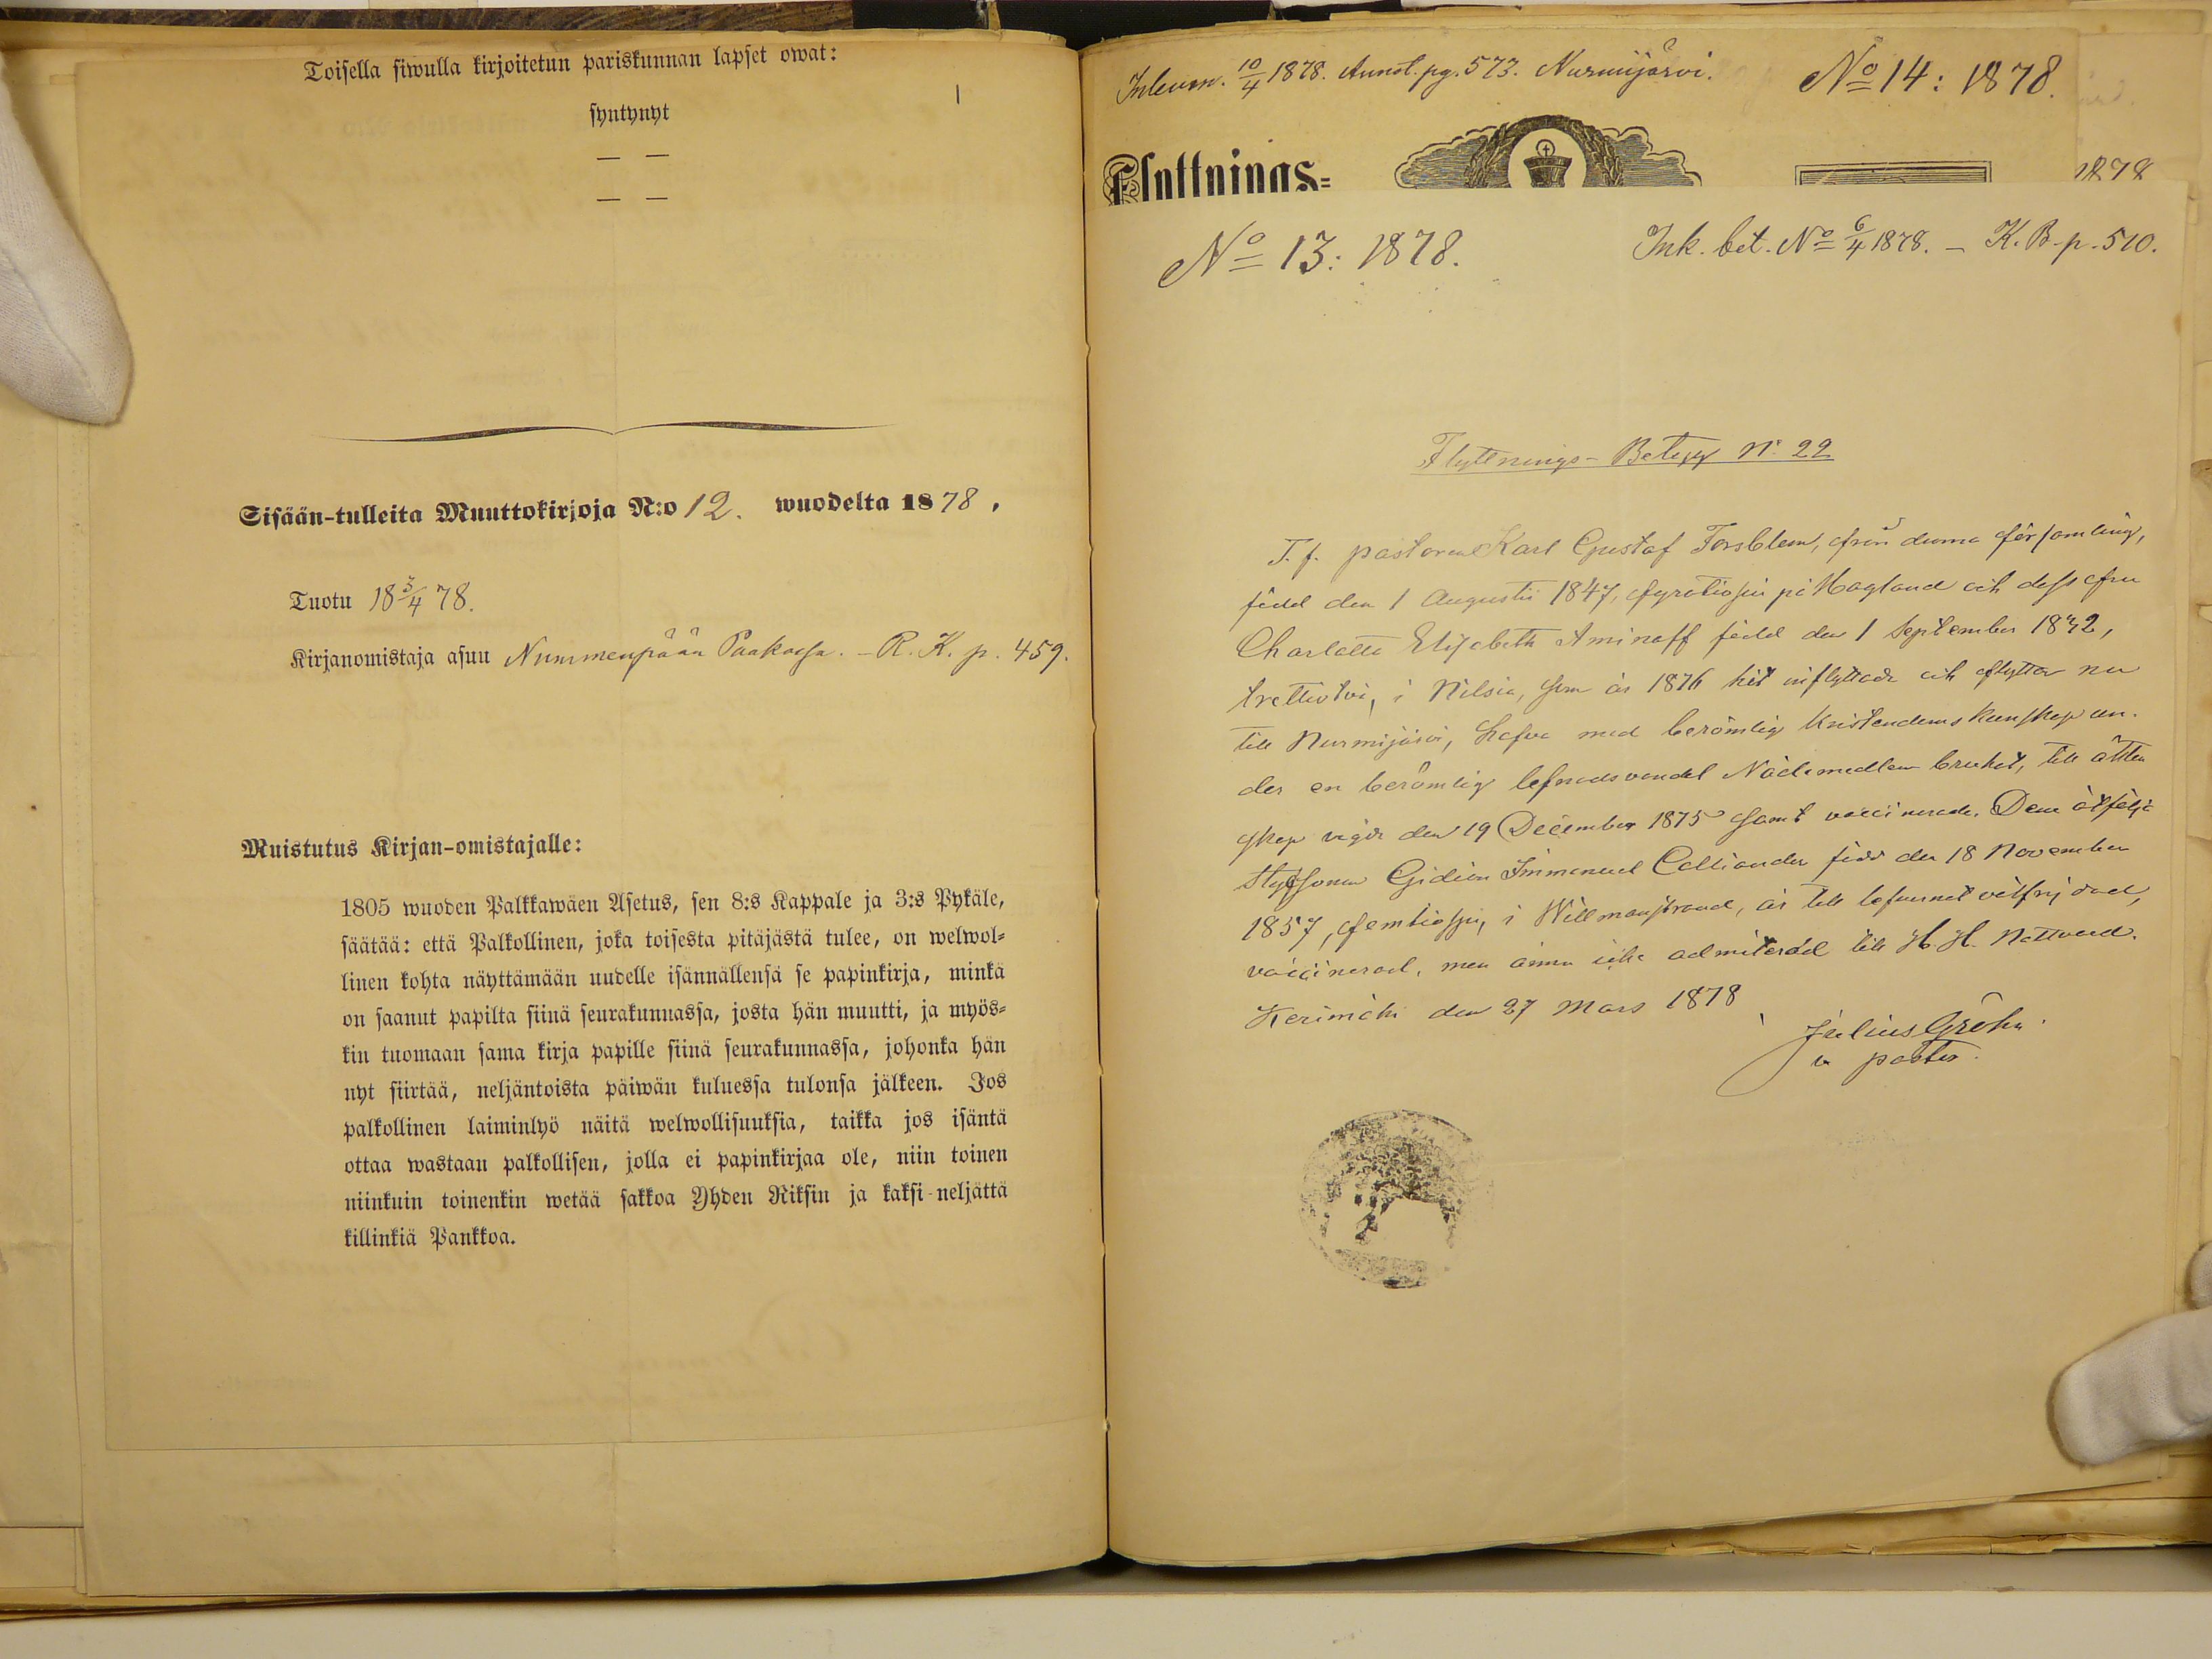 Toisella siwulla kirjoitetun pariskunnan lapset owat:
syntynyt
— —
— —
Sisään-tulleita Muuttokirjoja N:o 12. wuodelta 1878.
Tuotu 18 5/4 78.
Kirjanomistaja asuu Nummenpään Paakassa. - R. K. p. 459.
Muistutus Kirjan-omistajalle:
1805 wuoden Palkkawäen Asetus, sen 8:s Kappale ja 3:s Pykäle,
säätää: että Palkollinen, joka toisesta pitäjästä tulee, on welwol-
linen kohta näyttämään uudelle isännällensä se papinkirja, minkä
on saanut papilta siinä seurakunnassa, josta hän muutti, ja myös-
kin tuomaan sama kirja papille siinä seurakunnassa, johonka hän
nyt siirtää, neljäntoista päiwän kuluessa tulonsa jälkeen. Jos
palkollinen laiminlyö näitä welwollisuuksia, taikka jos isäntä
ottaa wastaan palkollisen, jolla ei papinkirjaa ole, niin toinen
niinkuin toinenkin wetää sakkoa Yhden Riksin ja kaksi-neljättä
killinkiä Pankkoa.
Inlevn. 10/4 1878. Annot. pg. 573. Nurmijärvi. No 14: 1878.
Flyttnings=
1878
No 13: 1878. Ink. bet. No 6/4 1878. - K. B. p. 510.
Flyttnings-Betyg No 22
T. f. pastoren Karl Gustaf Forsblom, från denna församling,
född den 1 Augusti 1847, fyratiosju på Hogland och dess fru
Charlotta Elisabeth Aminoff född den 1 September 1832,
trettiotvå, i Nilsiä, som år 1876 hit inflyttade och flytta nu
till Nurmijärvi, hafva med berömlig kristendoms kunskap un-
der en berömlig lefnadsvandel Nådemedlen brukat, till äkten
skap vigde den 19 December 1875 samt vaccinerade. Dem åtfölja
Styfsonen Gideon Immanuel Calliander född den 18 November
1857, femtiosju, i Willmanstrand, är till befunnet välfrejdad,
vaccinerad, men ännu icke admitterad till H. H. Nattvard.
Kerimäki den 27 Mars 1878
Julius Gröhn.
v. pastor.